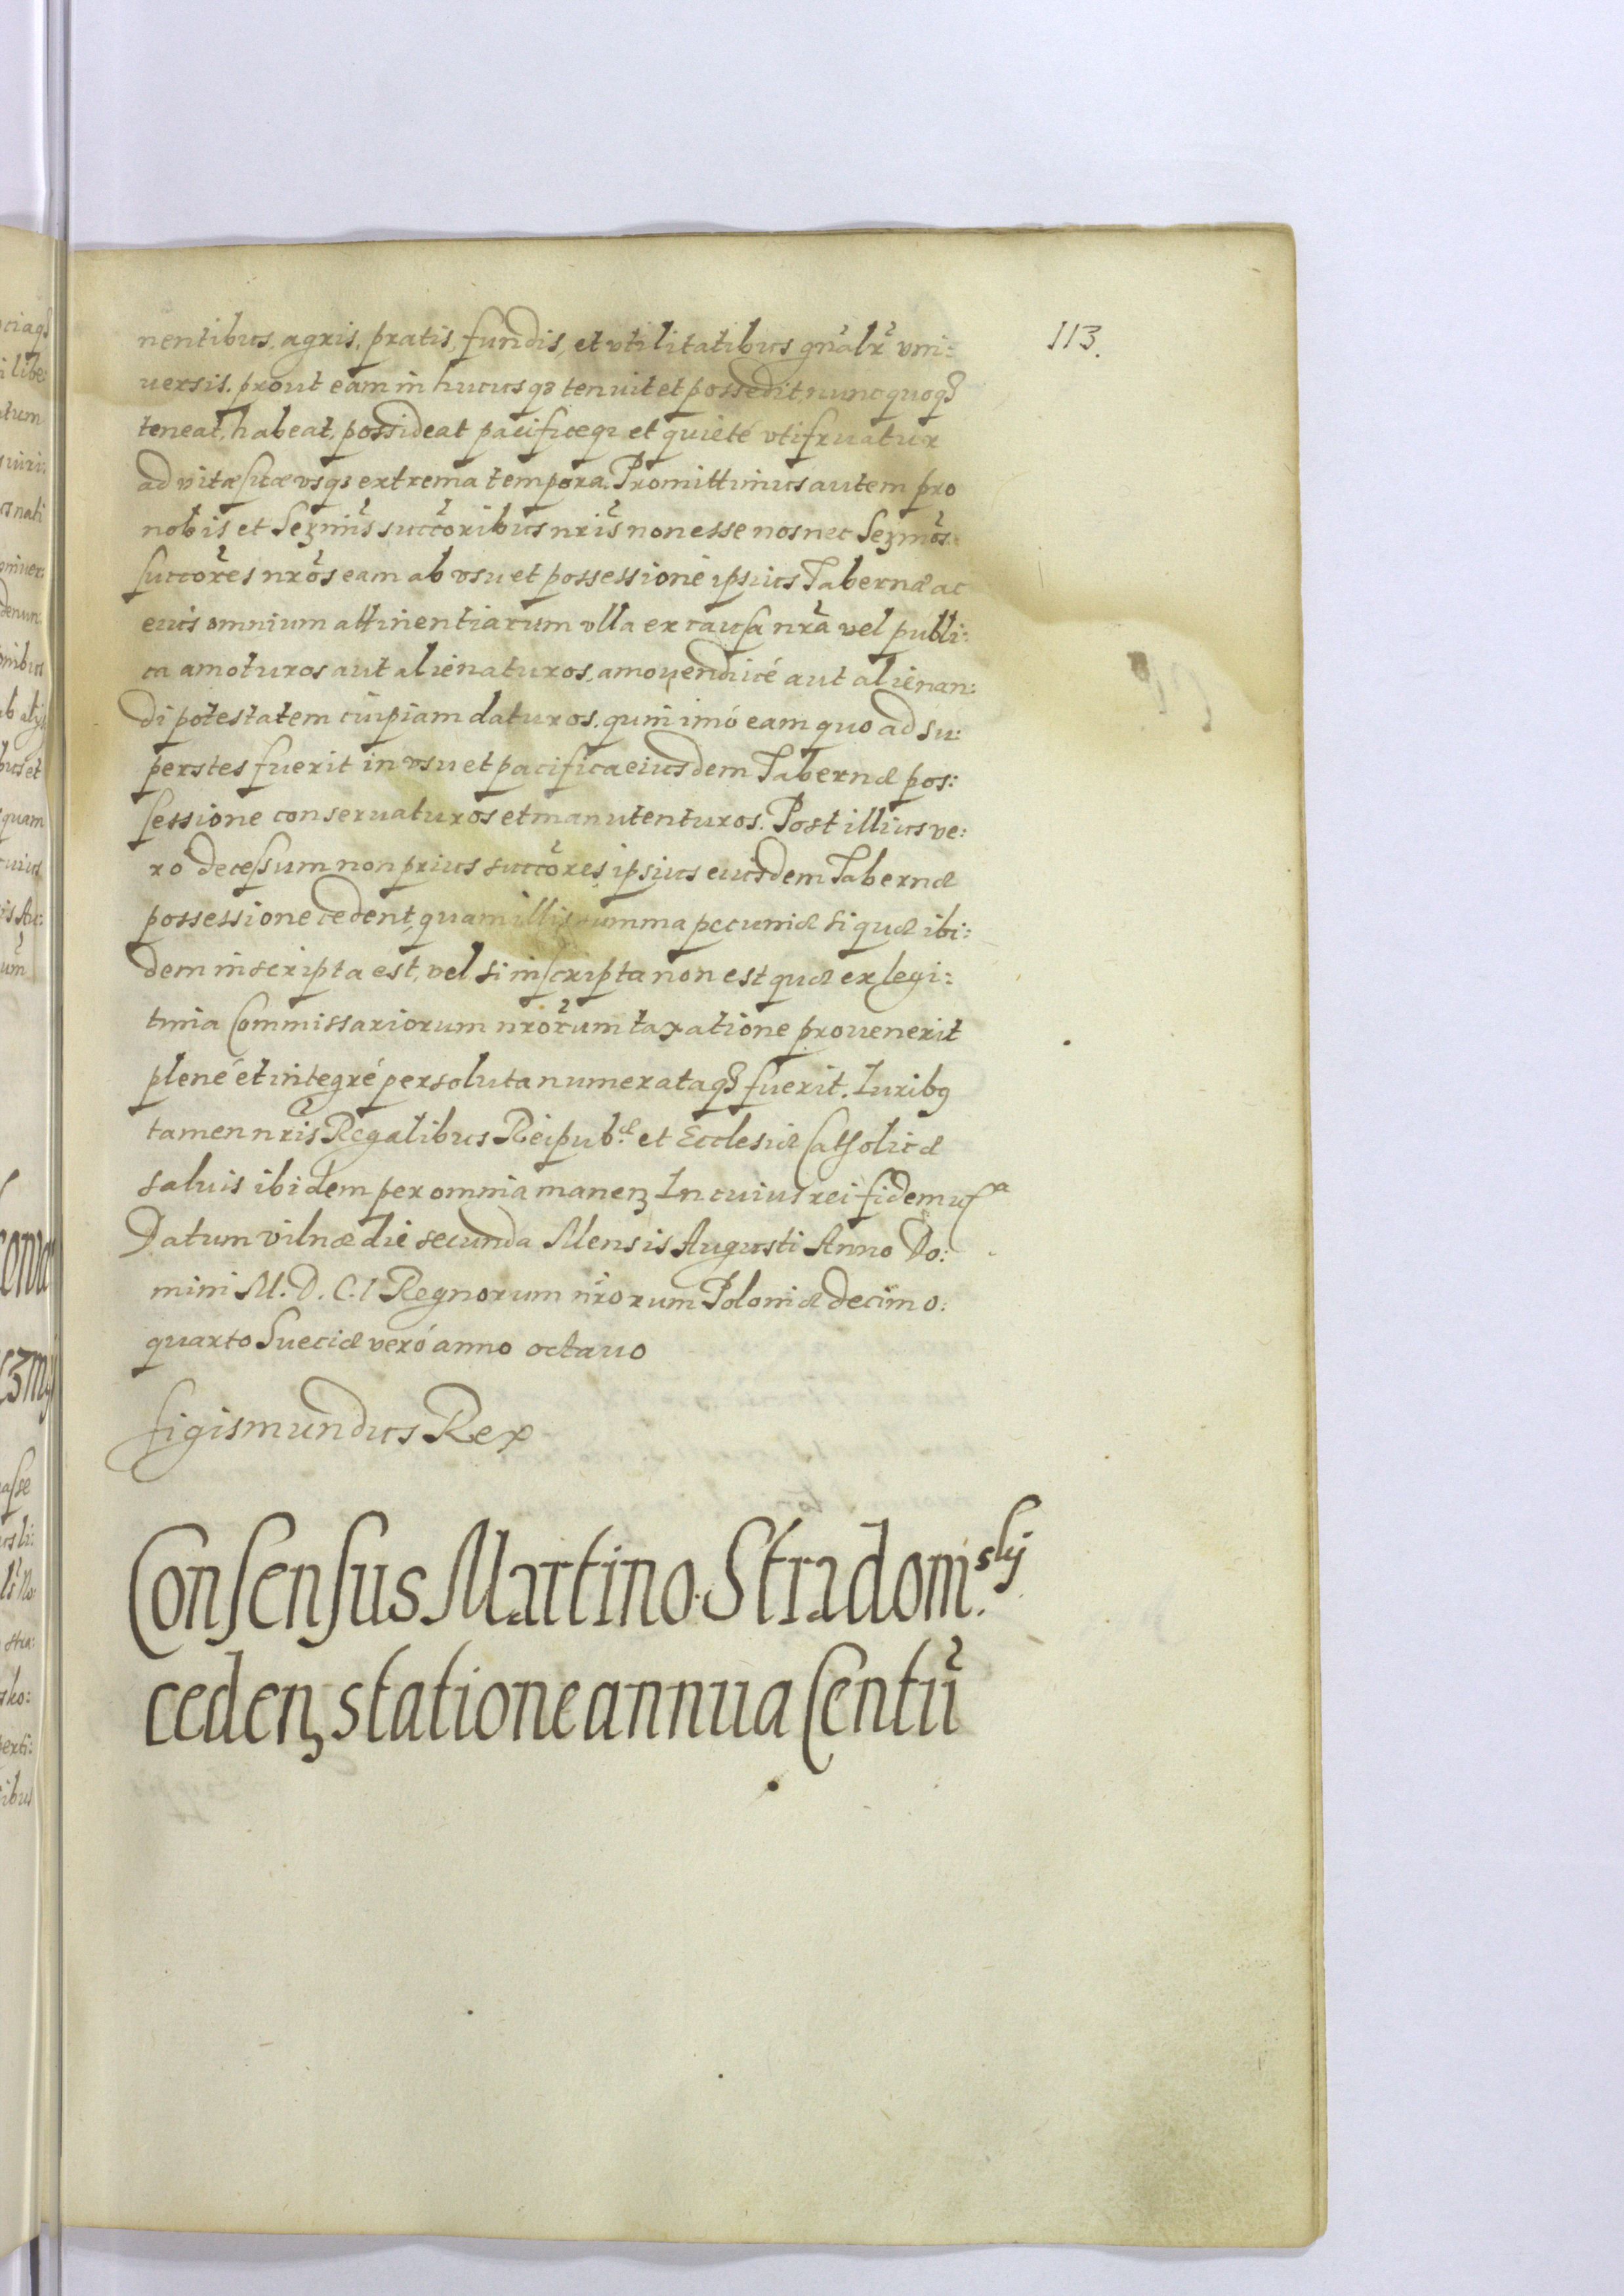 113.
nentibus, agris, pratis, fundis, et vtilitatibus gn̄alr̄ vni:
uersis. prout eam in hucusq₃ tenuit et possedit, nunc quoq₃
teneat, habeat, possideat pacificeq₃ et quieté vtifruatur
ad vitæ suæ vsq₃ extrema tempora. Promittimus autem pro
nobis et Sez̄mis succ̄oribus nr̄is non esse nos nec Sez̄mos
succ̄ores nr̄os eam ab vsu et possessione ipsius Tabernæ ac
eius omnium attinentiarum vlla ex causa nr̄a vel publi:
ca amoturos aut alienaturos, amovendivé aut alienan:
di potestatem cuipiam daturos. quin imó eam quo ad su:
perstes fuerit in vsu et pacifica eiusdem Tabernæ pos:
sessione conseruaturos et manutenturos. Post illius ve:
ro decessum non prius succ̄ores ipsius eiusdem Tabernæ
possessione cedent, quam illis summa pecuniæ si quæ ibi:
dem inscripta est, vel si inscripta non est quæ ex legi:
tima Commissariorum nr̄orum taxatione prouenerit
plené et integré persoluta numerataq₃ fuerit. Iuribꝰ
tamen nr̄is Regalibus Reipub.æ et Ecclesiæ Catholicæ
saluis ibidem per omnia manenꝫ In cuius rei fidem
Datum vilnæ die secunda Mensis Augusti Anno Do:
mini M.D.C.I Regnorum nr̄orum Poloniæ decimo:
quarto Sueciæ veró anno octauo
Sigismundus Rex
Consensus Martino Stradom.slij
cedenꝫ statione annua Centū